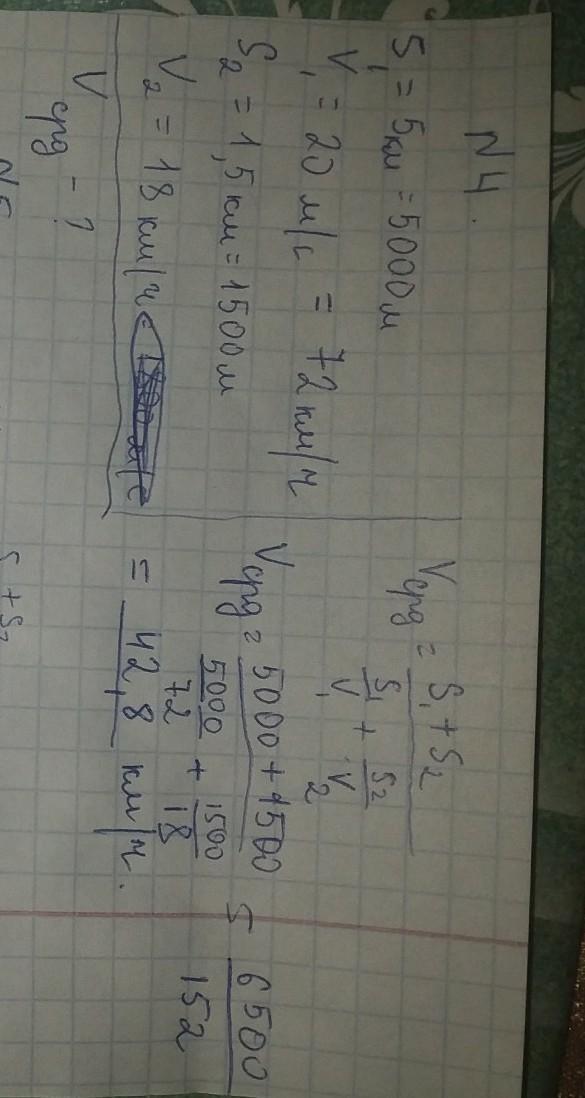 N4.
S₁ = 5км = 5000м
V₁ = 20 м/с = 72км/ч
S₂ = 1,5км = 1500м
V₂ = 18 км/ч =
Vсрд - ?
Vсрд = (S₁ + S₂) / (S₁/V₁ + S₂/V₂)
Vсрд = (5000 + 1500) / (5000/72 + 1500/18) = 6500/152
= 42,8 км/ч.
N5
S₁ + S₂